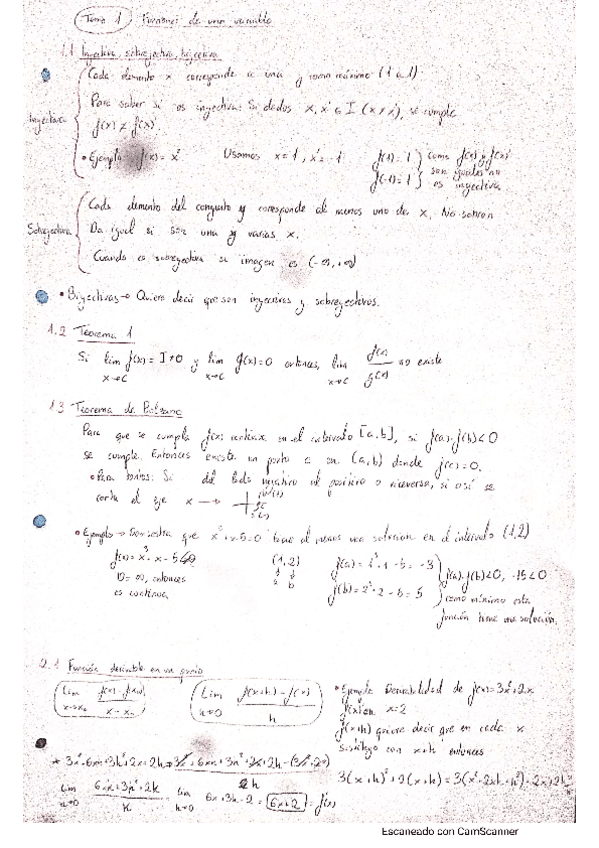 Tema 1 Funciones de una variable
1.1 Inyectiva, sobreyectiva, biyectiva
Inyectiva
Cada elemento x corresponde a una y como máximo (1 a 1)
Para saber si es inyectiva: Si dados x, x' ∈ I (x ≠ x'), se cumple
f(x) ≠ f(x')
• Ejemplo f(x) = x² Usamos x = 1, x' = -1 f(1) = 1 como f(x) y f(x')
f(-1) = 1 son iguales no
es inyectiva
Sobreyectiva
Cada elemento del conjunto y corresponde al menos uno de x. No sobran
Da igual si son una y varias x.
Cuando es sobreyectiva su imagen es (-∞, +∞)
• Biyectivas → Quiere decir que son inyectivas y sobreyectivas.
1.2 Teorema 1
Si lim f(x) = I ≠ 0 y lim g(x) = 0 entonces, lim f(x)/g(x) no existe
x→c x→c x→c
1.3 Teorema de Bolzano
Para que se cumpla f(x) continua en el intervalo [a,b], si f(a)·f(b)<0
se cumple. Entonces existe un punto c en (a,b) donde f(c)=0.
• Para tontos: Si del lado negativo al positivo o viceversa, si o si se
corta el eje x →
• Ejemplo → Demuestra que x³+x-5=0 tiene al menos una solucion en el intervalo (1,2)
f(x) = x³ + x - 5 (1,2) f(a) = 1³+1-5 = -3 f(a)·f(b)<0, -15<0
D = ∞, entonces a b f(b) = 2³+2-5 = 5 como mínimo esta
es continua función tiene una solución.
2.1 Función derivable en un punto
Lim f(x)-f(x₀) / x-x₀ Lim f(x+h)-f(x) / h • Ejemplo Derivabilidad de f(x)=3x²+2x
x→x₀ h→0 x=2
f(x+h) quiere decir que en cada x
sustituyo con x+h entonces
3(x+h)²+2(x+h) = 3(x²+2xh+h²)+2x+2h
* 3x²+6xh+3h²+2x+2h ⇒ 3x²+6xh+3h²+2x+2h-(3x²+2x)
h
Lim 6xh+3h²+2h / h = lim 6x+3h+2 = 6x+2 = f'(x)
h→0 h→0
Escaneado con CamScanner